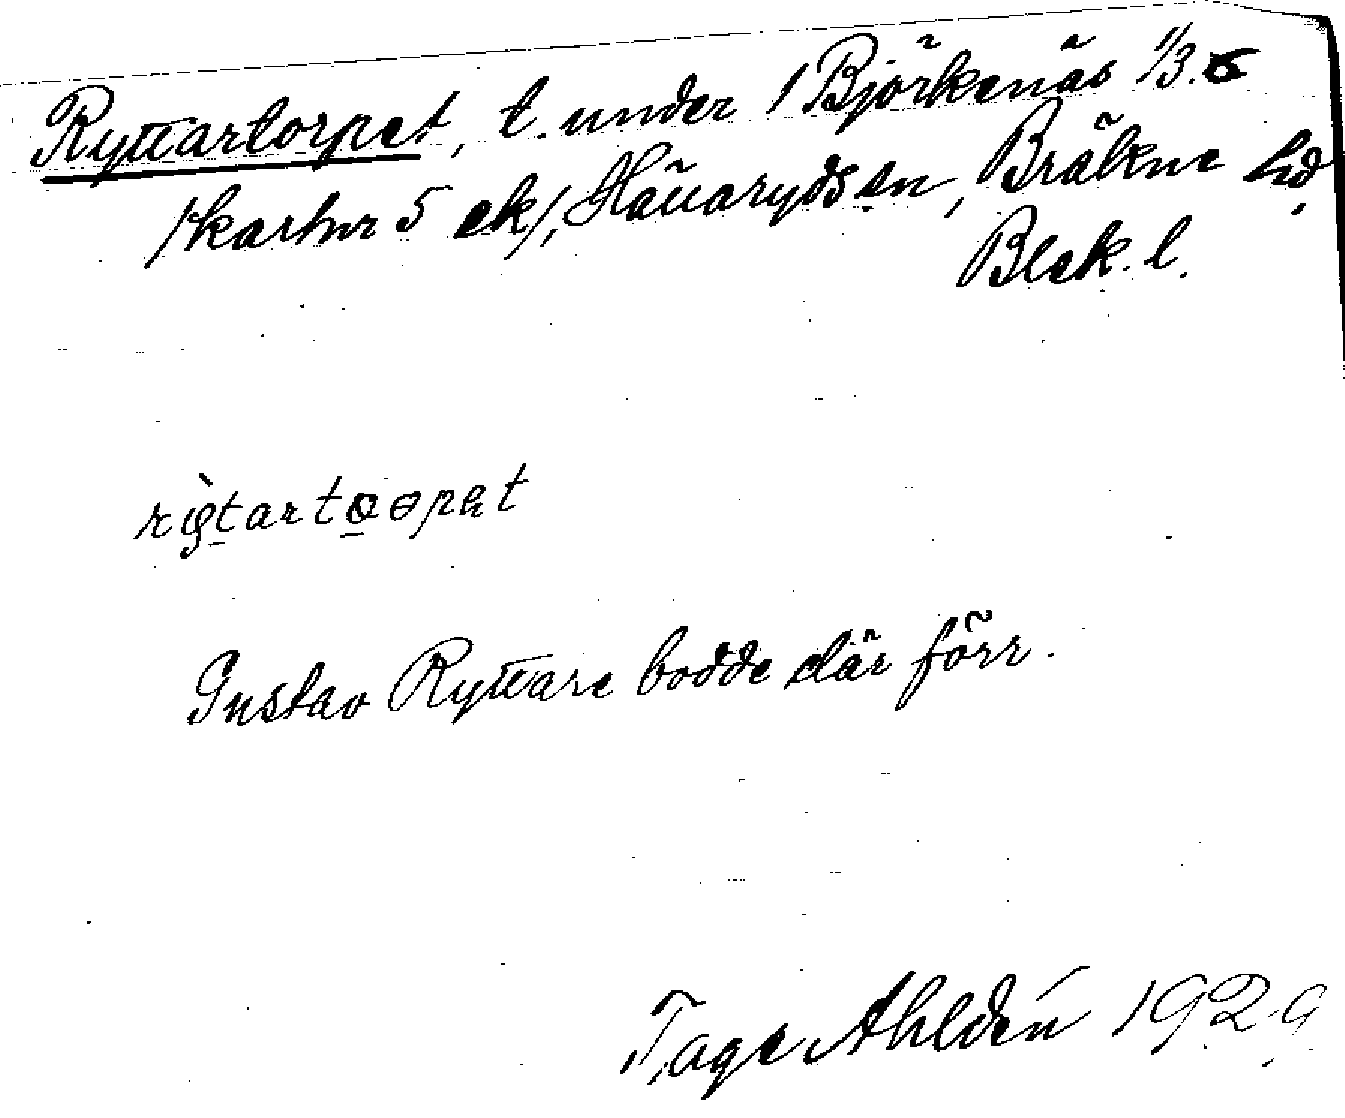 Ryttartorpet, t. under 1 Björkenäs 1/3. 5
/kartnr 5 ek/, Hällaryds sn, Bräkne hd,
Blek. l.
Gustav Ryttare bodde där förr.
Tage Ahldén 1929